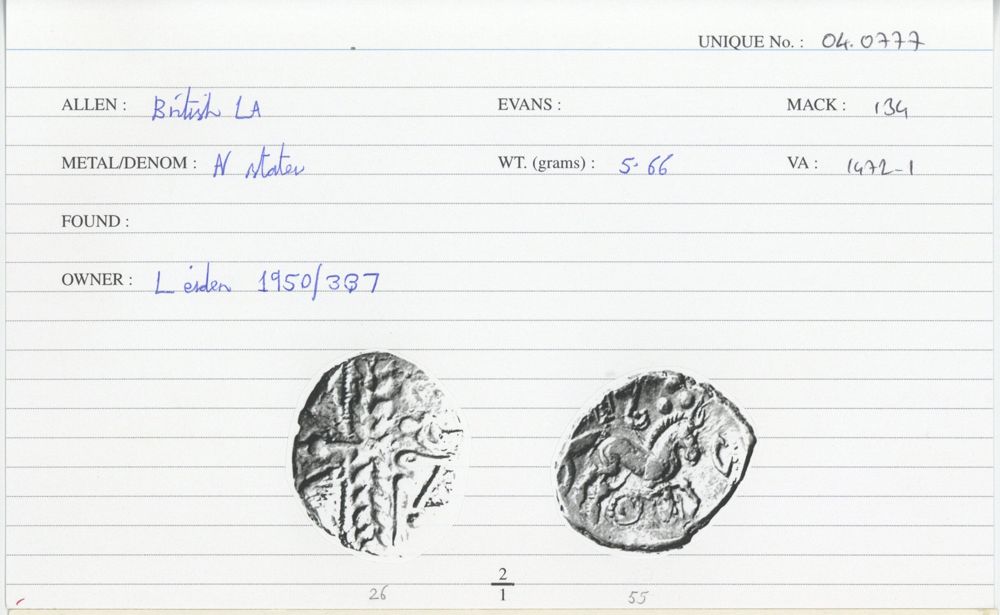 UNIQUE No. : 04.0777
ALLEN : British LA EVANS : MACK : 134
METAL/DENOM : N stater WT. (grams) : 5.66 VA : 1472-1
FOUND :
OWNER : Leiden 1950/337
2
26 1 55